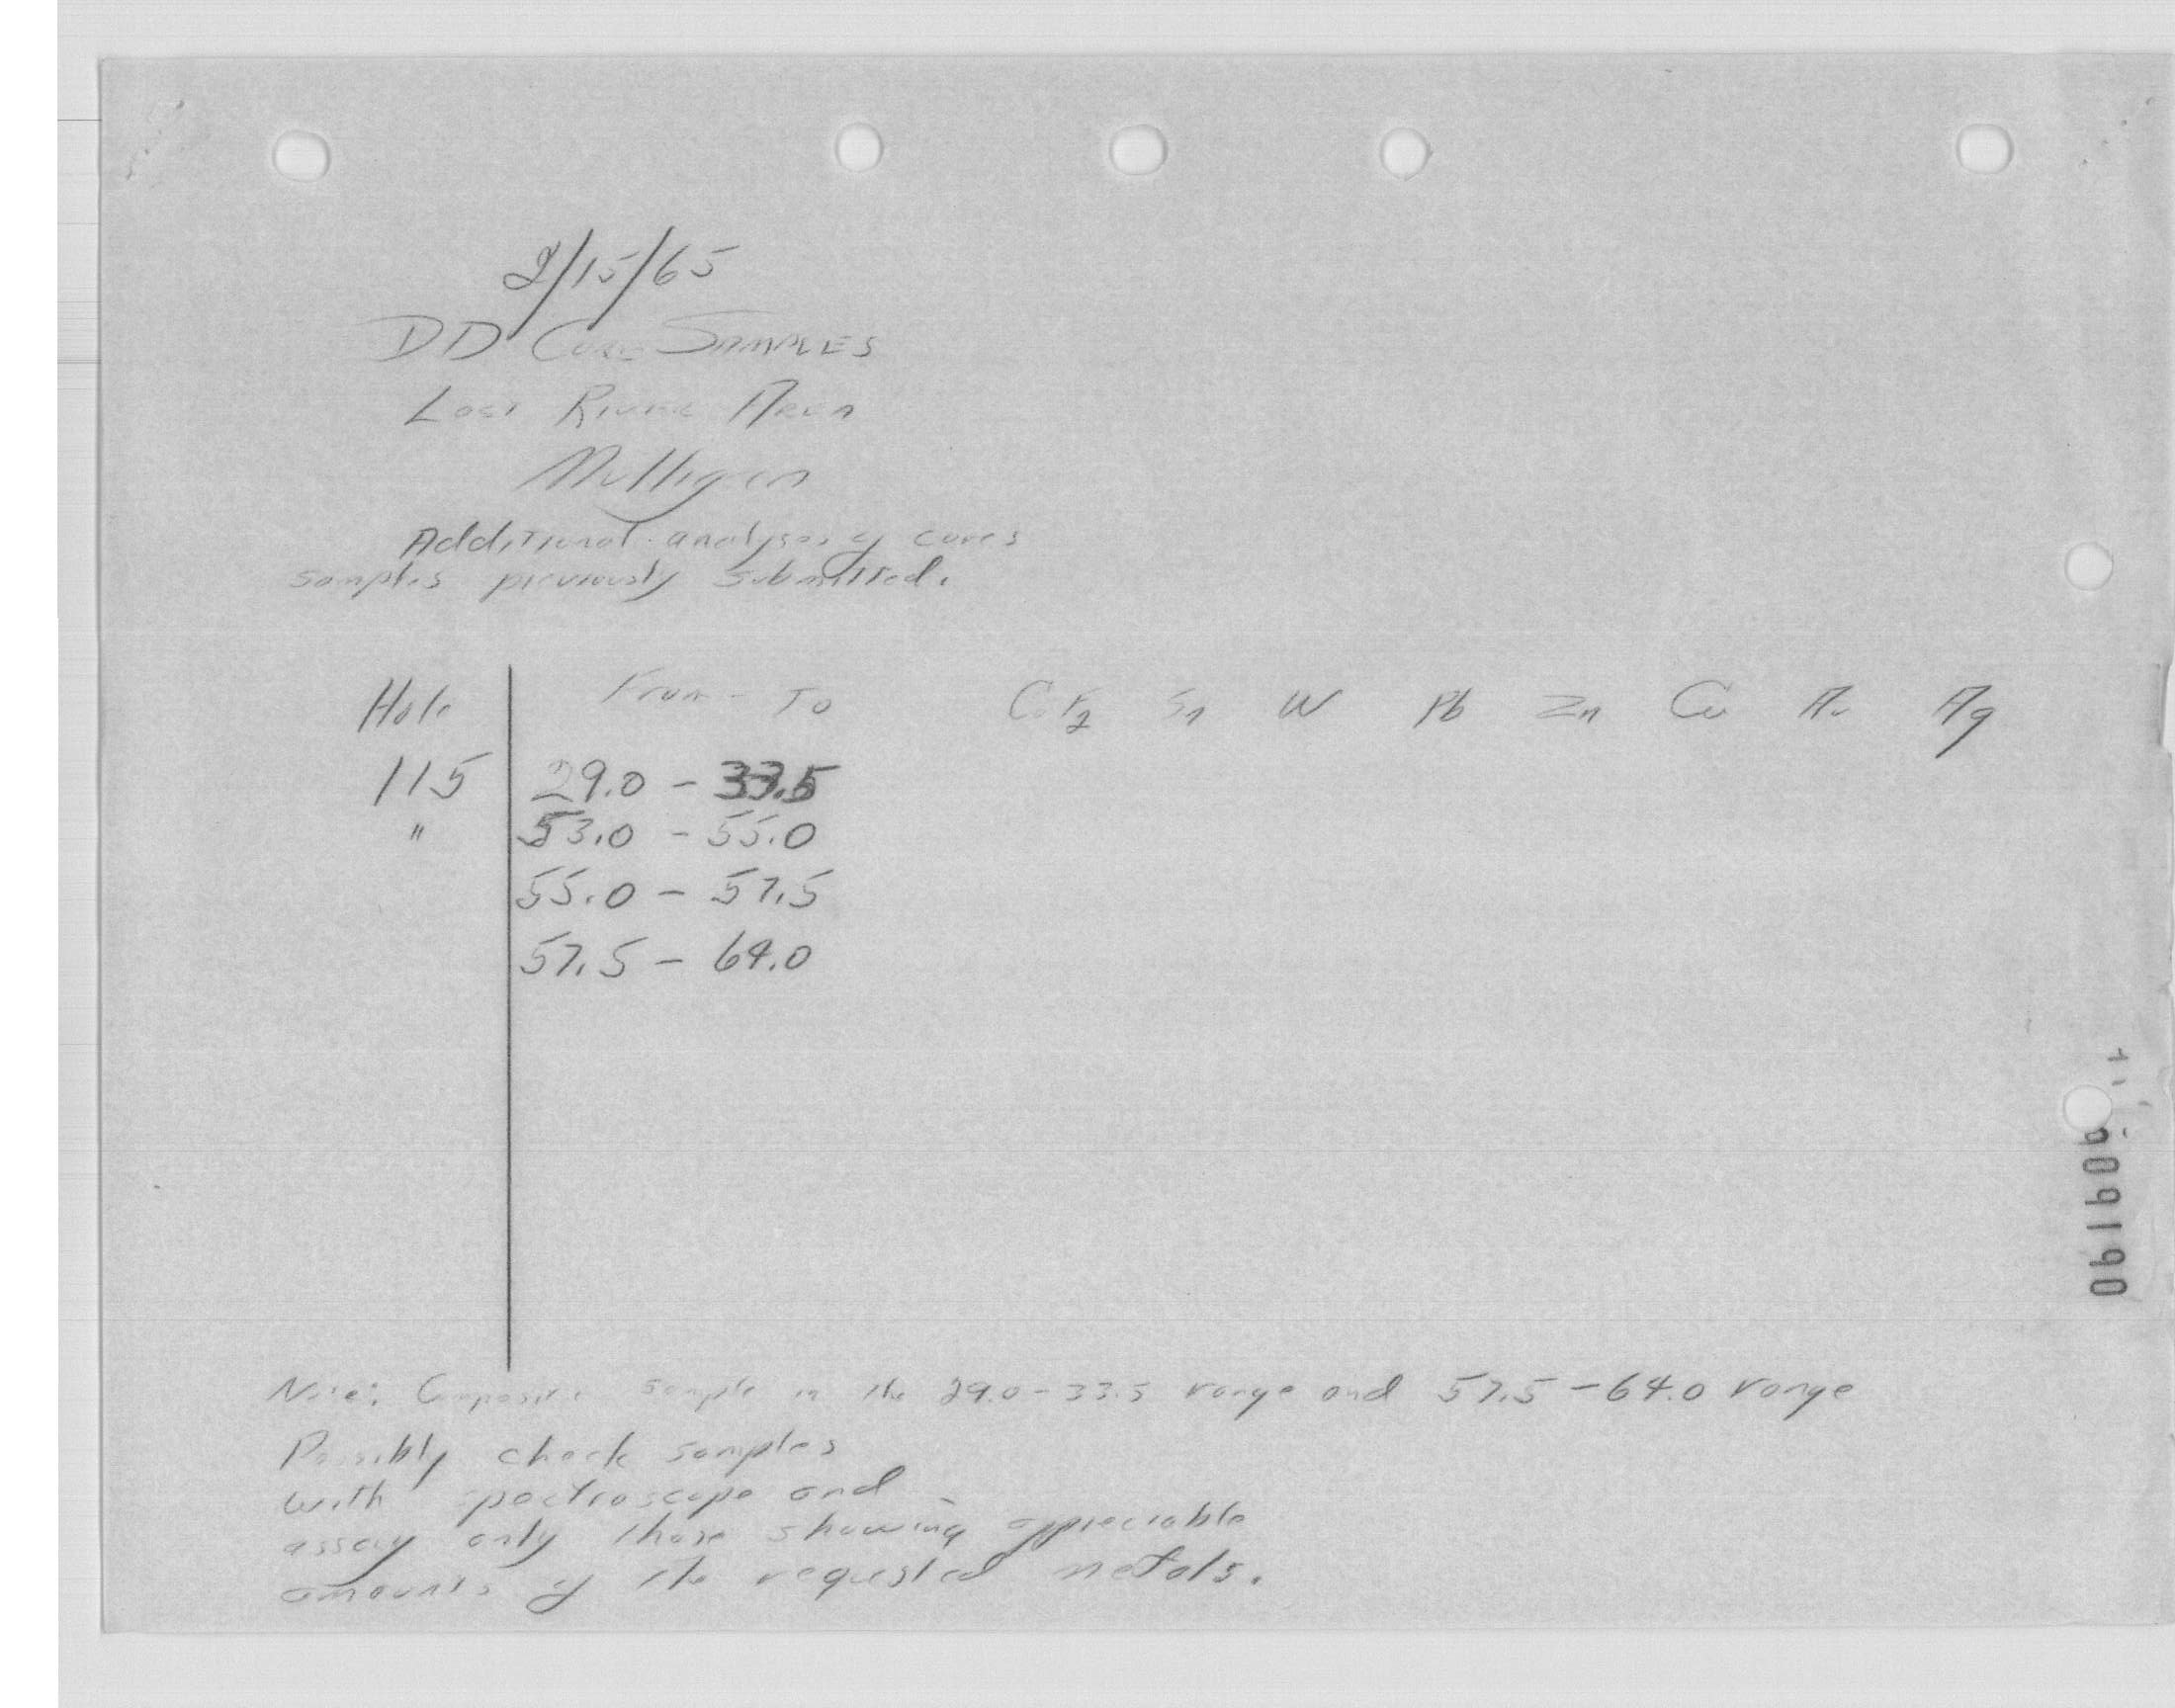 2/15/65
DD Core Samples
Lost River Area
Mulligan
Additional analyses of cores
samples previously submitted.
Hole From - To CaF2 Sn W Pb Zn Cu Au Ag
115 29.0 - 33.5
" 53.0 - 55.0
55.0 - 57.5
57.5 - 64.0
Note: Composite sample in the 29.0 - 33.5 range and 57.5 - 64.0 range
Possibly check samples
with spectroscope and
assay only those showing appreciable
amounts of the requested metals.